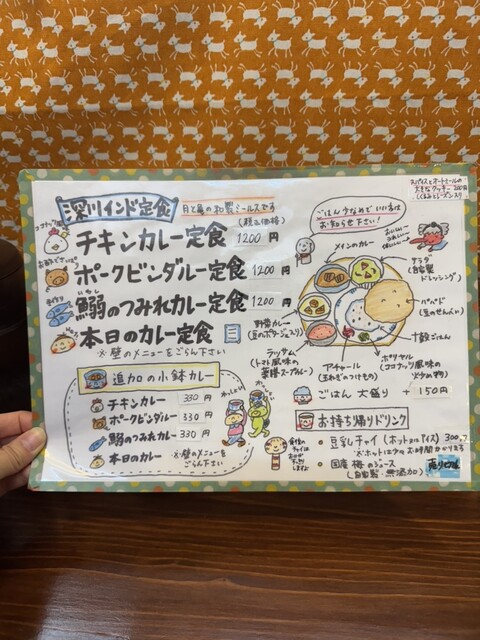 深川インド定食
月と亀の和製ミールスです
(税込価格)
チキンカレー定食 1200円
ポークビンダルー定食 1200円
鰯のつみれカレー定食 1200円
いわし
本日のカレー定食
※壁のメニューをごらん下さい
追加の小鉢カレー
チキンカレー 330円
ポークビンダルー 330円
鰯のつみれカレー 330円
本日のカレー
※壁のメニューを
ごらん下さい
スパイスとオートミールの
大きなクッキー 200円
ごはん少なめで いい方は
お知らせ下さい!
メインのカレー
サラダ
(自家製
ドレッシング)
パパド
(豆のせんべい)
十穀ごはん
ポリヤル
(ココナッツ風味の
アチャール
(玉ねぎのつけもの)
ラッサム
(トマト風味の
薬膳スープカレー)
野菜カレー
ごはん 大盛り + 150円
お持ち帰りドリンク
・豆乳チャイ (ホット or アイス) 300円
※ホットは少々お時間かかります
・国産 梅のジュース
(自家製 無添加)
売り切れ